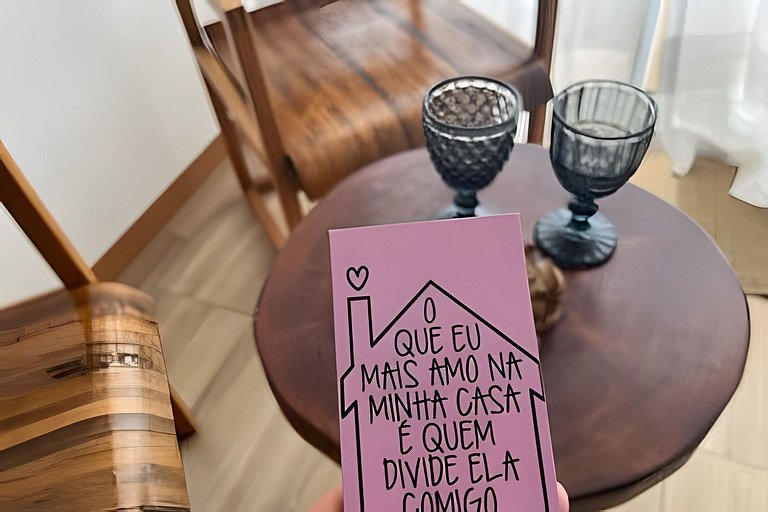 O
QUE EU
MAIS AMO NA
MINHA CASA
É QUEM
DIVIDE ELA
COMIGO